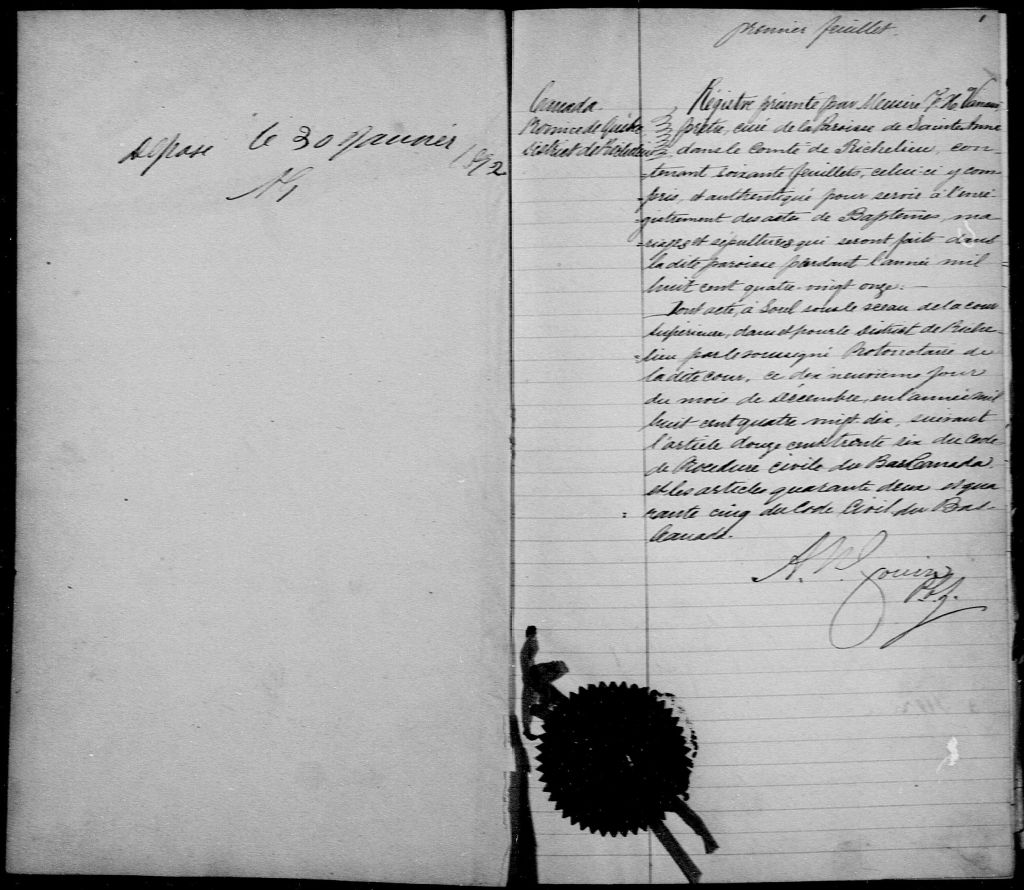 déposé le 30 Janvier 1892
premier feuillet.
1
Canada
Province de Québec
District de Richelieu
Régistre présenté par Messire
prêtre, curé de la Paroisse de Sainte Anne
dans le Comté de Richelieu, con-
-tenant soixante feuillets, celui-ci y com-
-pris, et authentiqué pour servir à l'enré-
-gistrement des actes de Baptême, ma-
-riages et sépultures qui seront faits dans
la dite paroisse pendant l'année mil
huit cent quatre-vingt onze.
Dont acte, à Sorel sous le sceau de la cour
supérieure, dans et pour le District de Riche
=lieu par le soussigné Protonotaire de
la dite cour, ce dix neuvième jour
du mois de Décembre, en l'année mil
huit cent quatre vingt dix, suivant
l'article douze cent trente six du Code
de Procédure civile du Bas Canada
et les articles quarante deux et qua
=rante cinq du Code Civil du Bas-
Canada.
A. N. Gouin